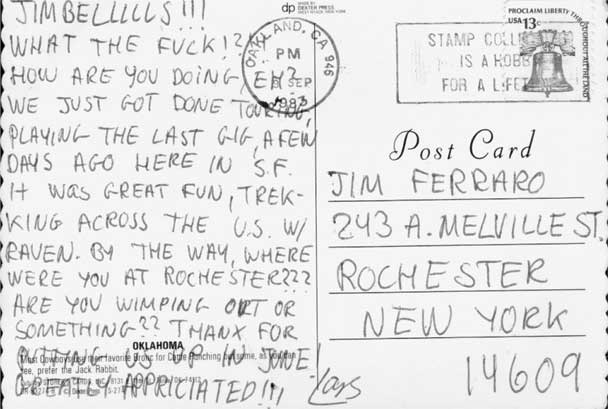 JIMBELLLLLS!!!
WHAT THE FUCK!?!
HOW ARE YOU DOING EH?
WE JUST GOT DONE TOURING,
PLAYING THE LAST GIG, A FEW
DAYS AGO HERE IN S.F.
IT WAS GREAT FUN, TREK-
KING ACROSS THE U.S. W/
RAVEN. BY THE WAY, WHERE
WERE YOU AT ROCHESTER???
ARE YOU WIMPING OUT OR
SOMETHING?? THANX FOR
PUTTING US UP IN JUNE
GREATLY APPRICIATED!!! Lars
OKLAHOMA
Most Cowboys use their favorite Bronc for Cattle Ranching but some, as you can
see, prefer the Jack Rabbit.
MADE BY
dp DEXTER PRESS
WEST NYACK, NEW YORK
OAKLAND, CA 946
PM
SEP
1983
STAMP COLL
IS A HOBB
FOR A LIFET
PROCLAIM LIBERTY THROUGHOUT ALL THE LAND
USA 13c
Post Card
JIM FERRARO
243 A. MELVILLE ST.
ROCHESTER
NEW YORK
14609